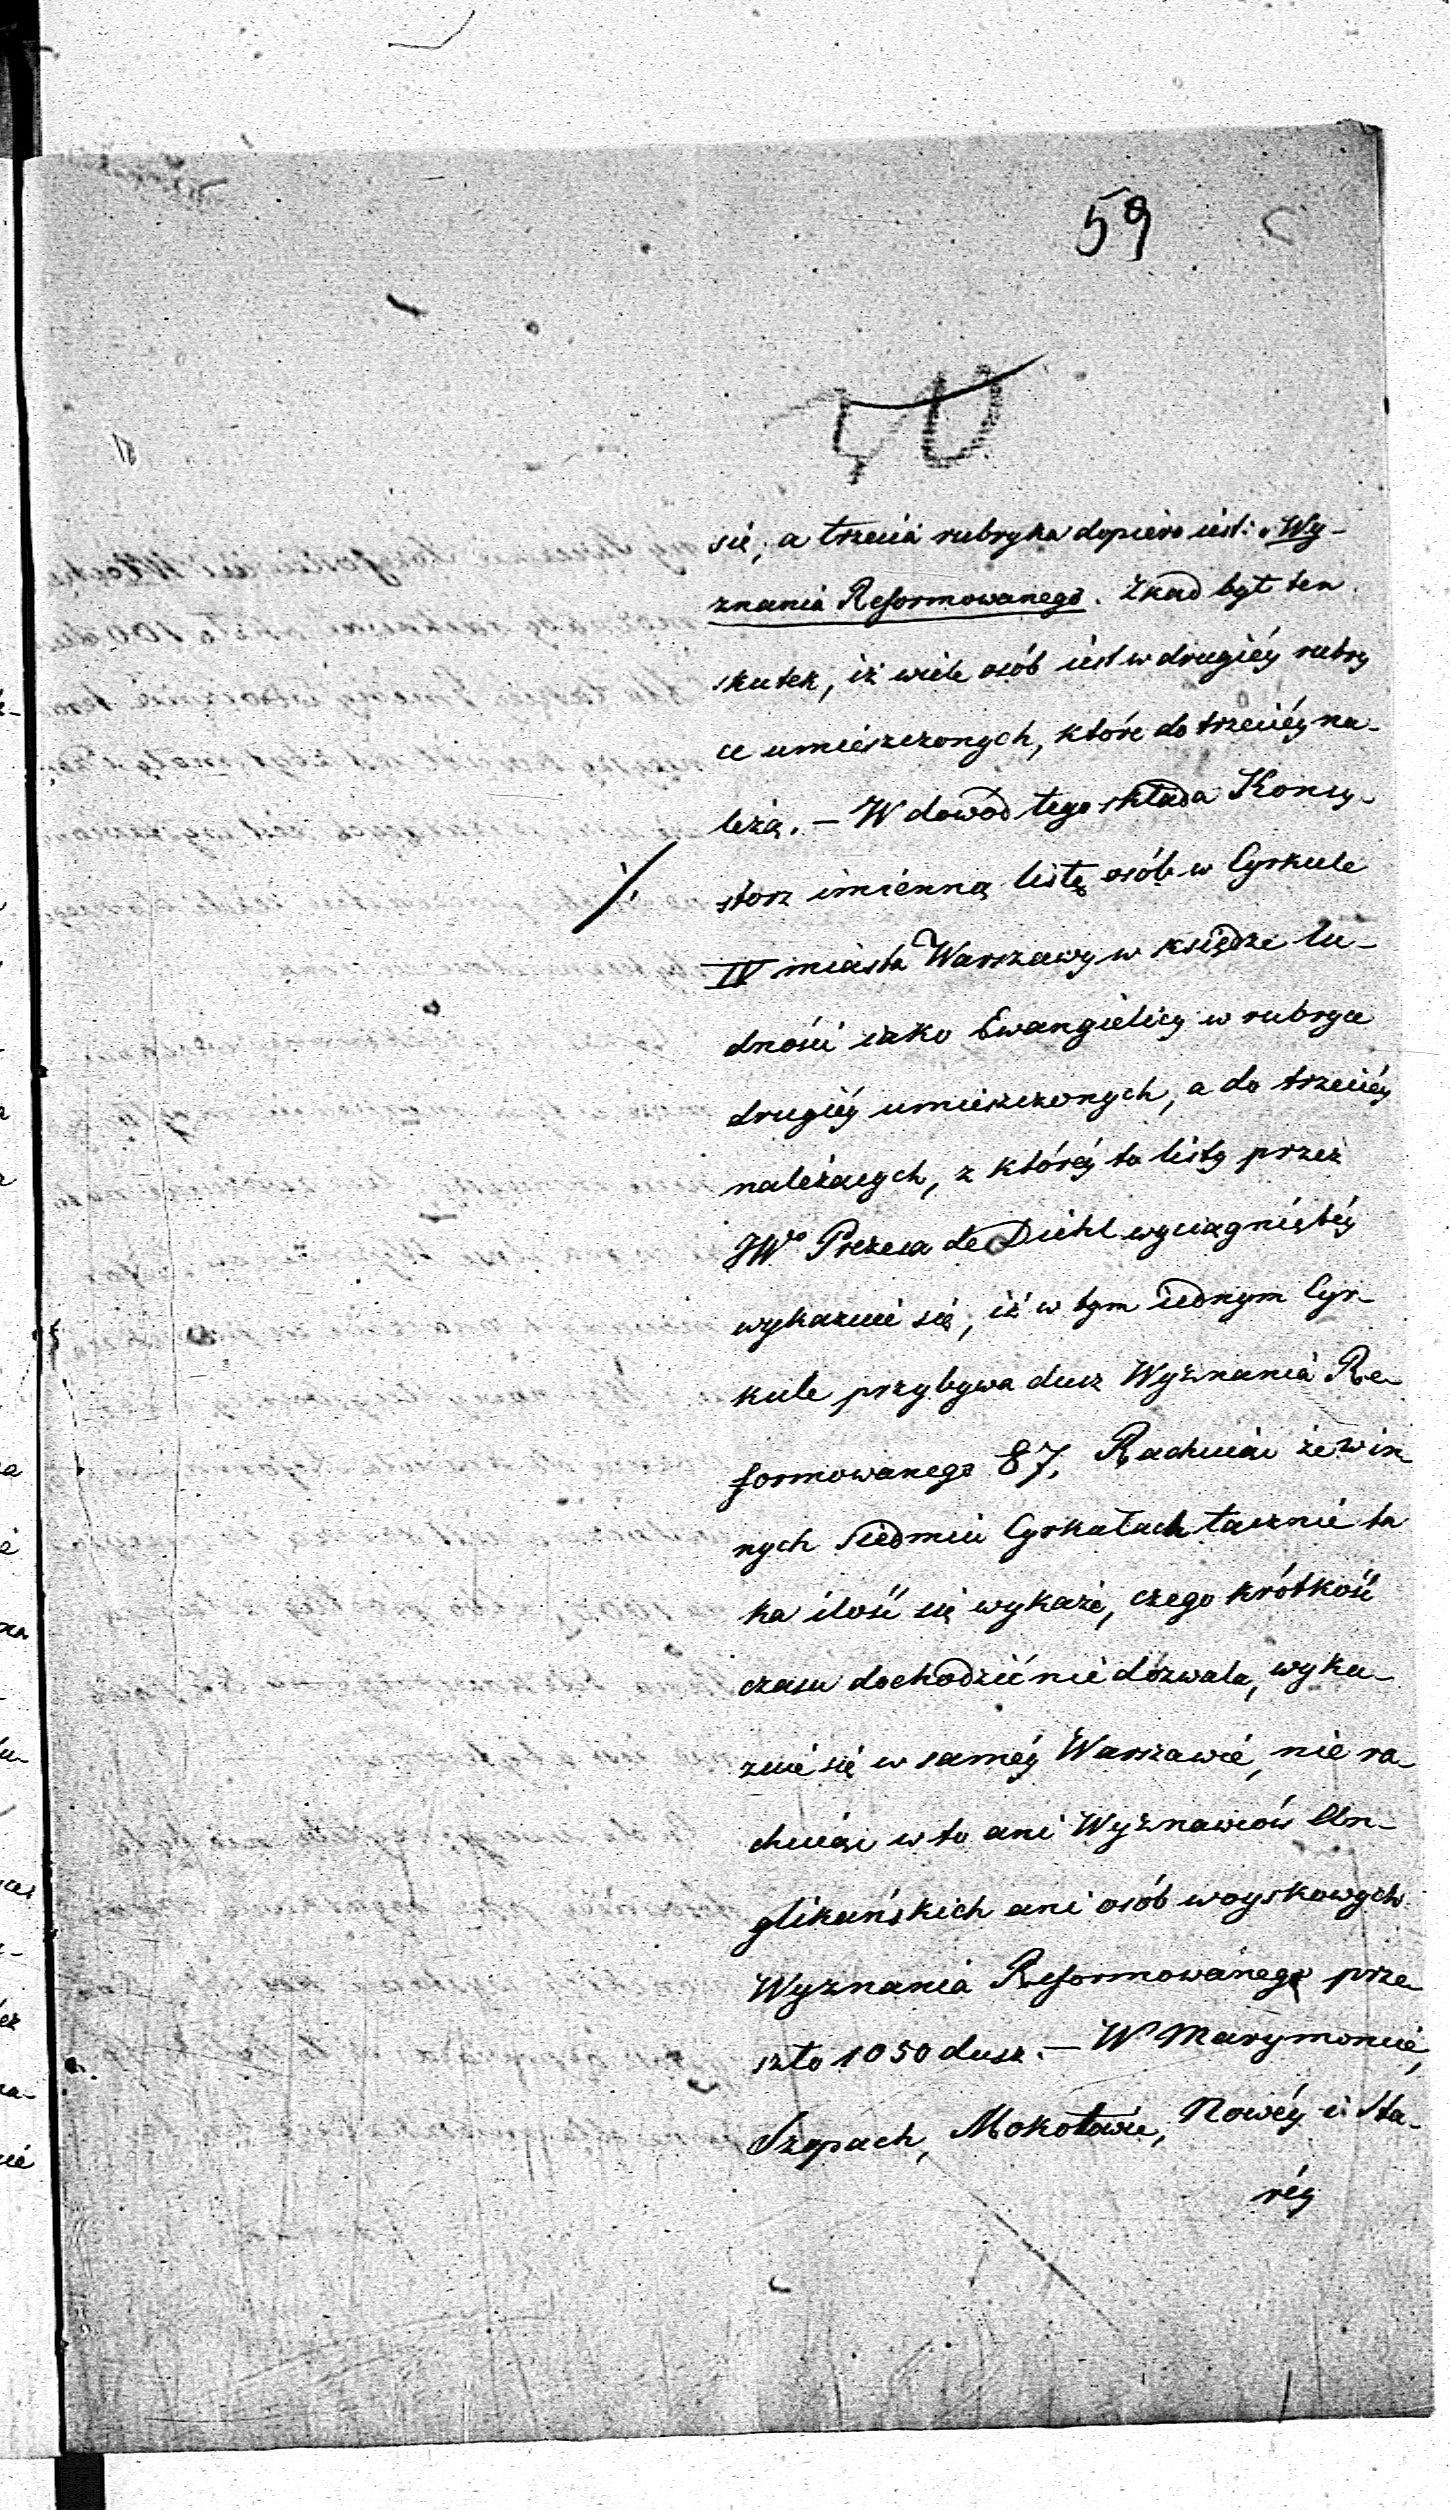 59
40
się, a trzecia rubryka dopiero iest: Wy-
znania Reformowanego. Zkąd był ten
skutek, iż wiele osób iest w drugiéy rubry
ce umieszczonych, które do trzeciéy na-
leżą. — W dowód tego składa Konsy-
storz imienną listę osób w Cyrkule
IV miasta Warszawy w księdze lu-
dności iako Ewangielicy w rubryce
drugiéy umieszczonych, a do trzeciéy
należących, z któréy to listy przez
JWo Prezesa de Diehl wyciągniętéy
wykazuie się, iż w tym iednym Cyr-
kule przybywa dusz Wyznania Re-
formowanego 87. Rachuiąc że w in
nych siedmiu Cyrkułach łącznie ta
ka ilość się wykaże, czego krótkość
czasu dochodzić nie dozwala, wyka-
zuie się w saméy Warszawie, nie ra-
chuiąc w to ani Wyznawców An-
glikańskich ani osób woyskowych
Wyznania Reformowanego prze
szło 1050 dusz. — W Marymoncie,
Szopach, Mokotowie, Nowéy i Sta-
réy